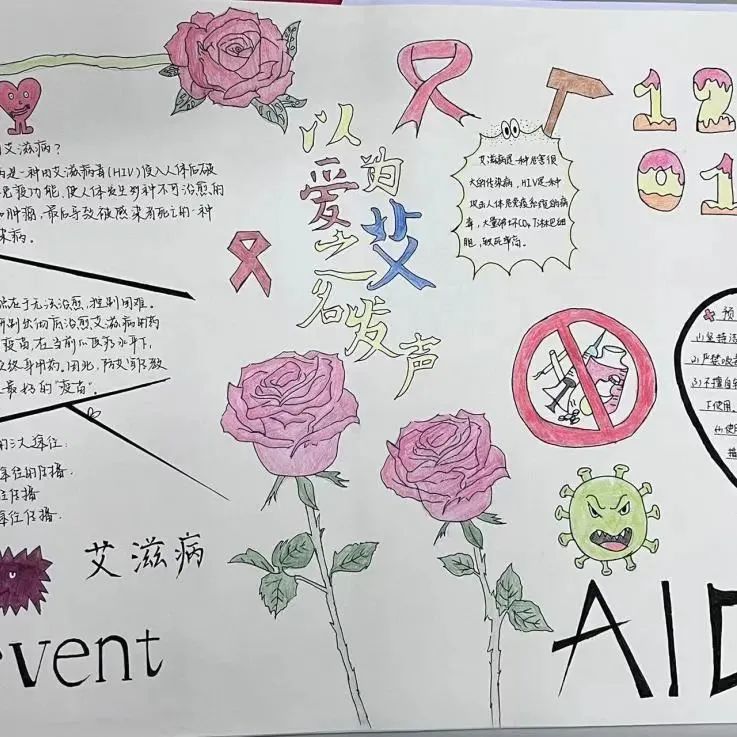 艾滋病?
病是一种由艾滋病毒(HIV)侵入人体后破
免疫功能,使人体发生多种不可治愈的
和肿瘤,最后导致被感染者死亡的一种
染病。
在于无法治愈,控制困难。
研制出彻底治愈艾滋病的药
疫苗,在当前的医疗水平下,
终身用药。因此,
最好的"疫苗"。
的三大途径:
途径的传播.
传播
途径传播.
艾滋病
vent
以爱之名
为艾发声
艾滋病是一种危害很
大的传染病,HIV是一种
攻击人体免疫系统的病
毒,大量破坏CD4T淋巴细
胞,致死率高。
12
01
预
(1)坚持洁
(2)严禁吸毒
(3)不擅自
下使用.
(4)使用
措
AID